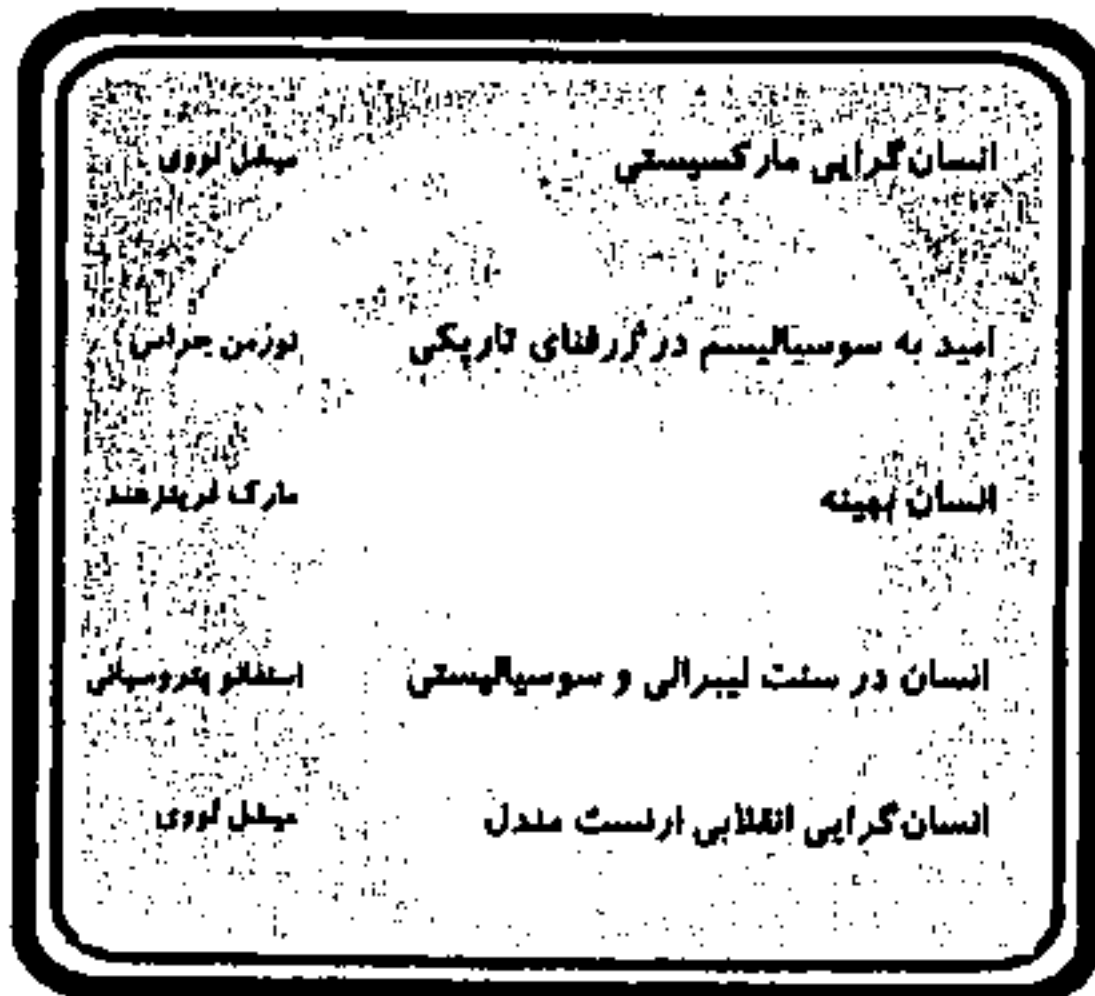 انسان‌گرایی مارکسیستی میشل لووی
امید به سوسیالیسم در ژرفنای تاریکی نورمن جراس
انسان بهینه مارک فریدزهند
انسان در سنت لیبرالی و سوسیالیستی استفانو پتروسیانی
انسان‌گرایی انقلابی ارنست مندل میشل لووی